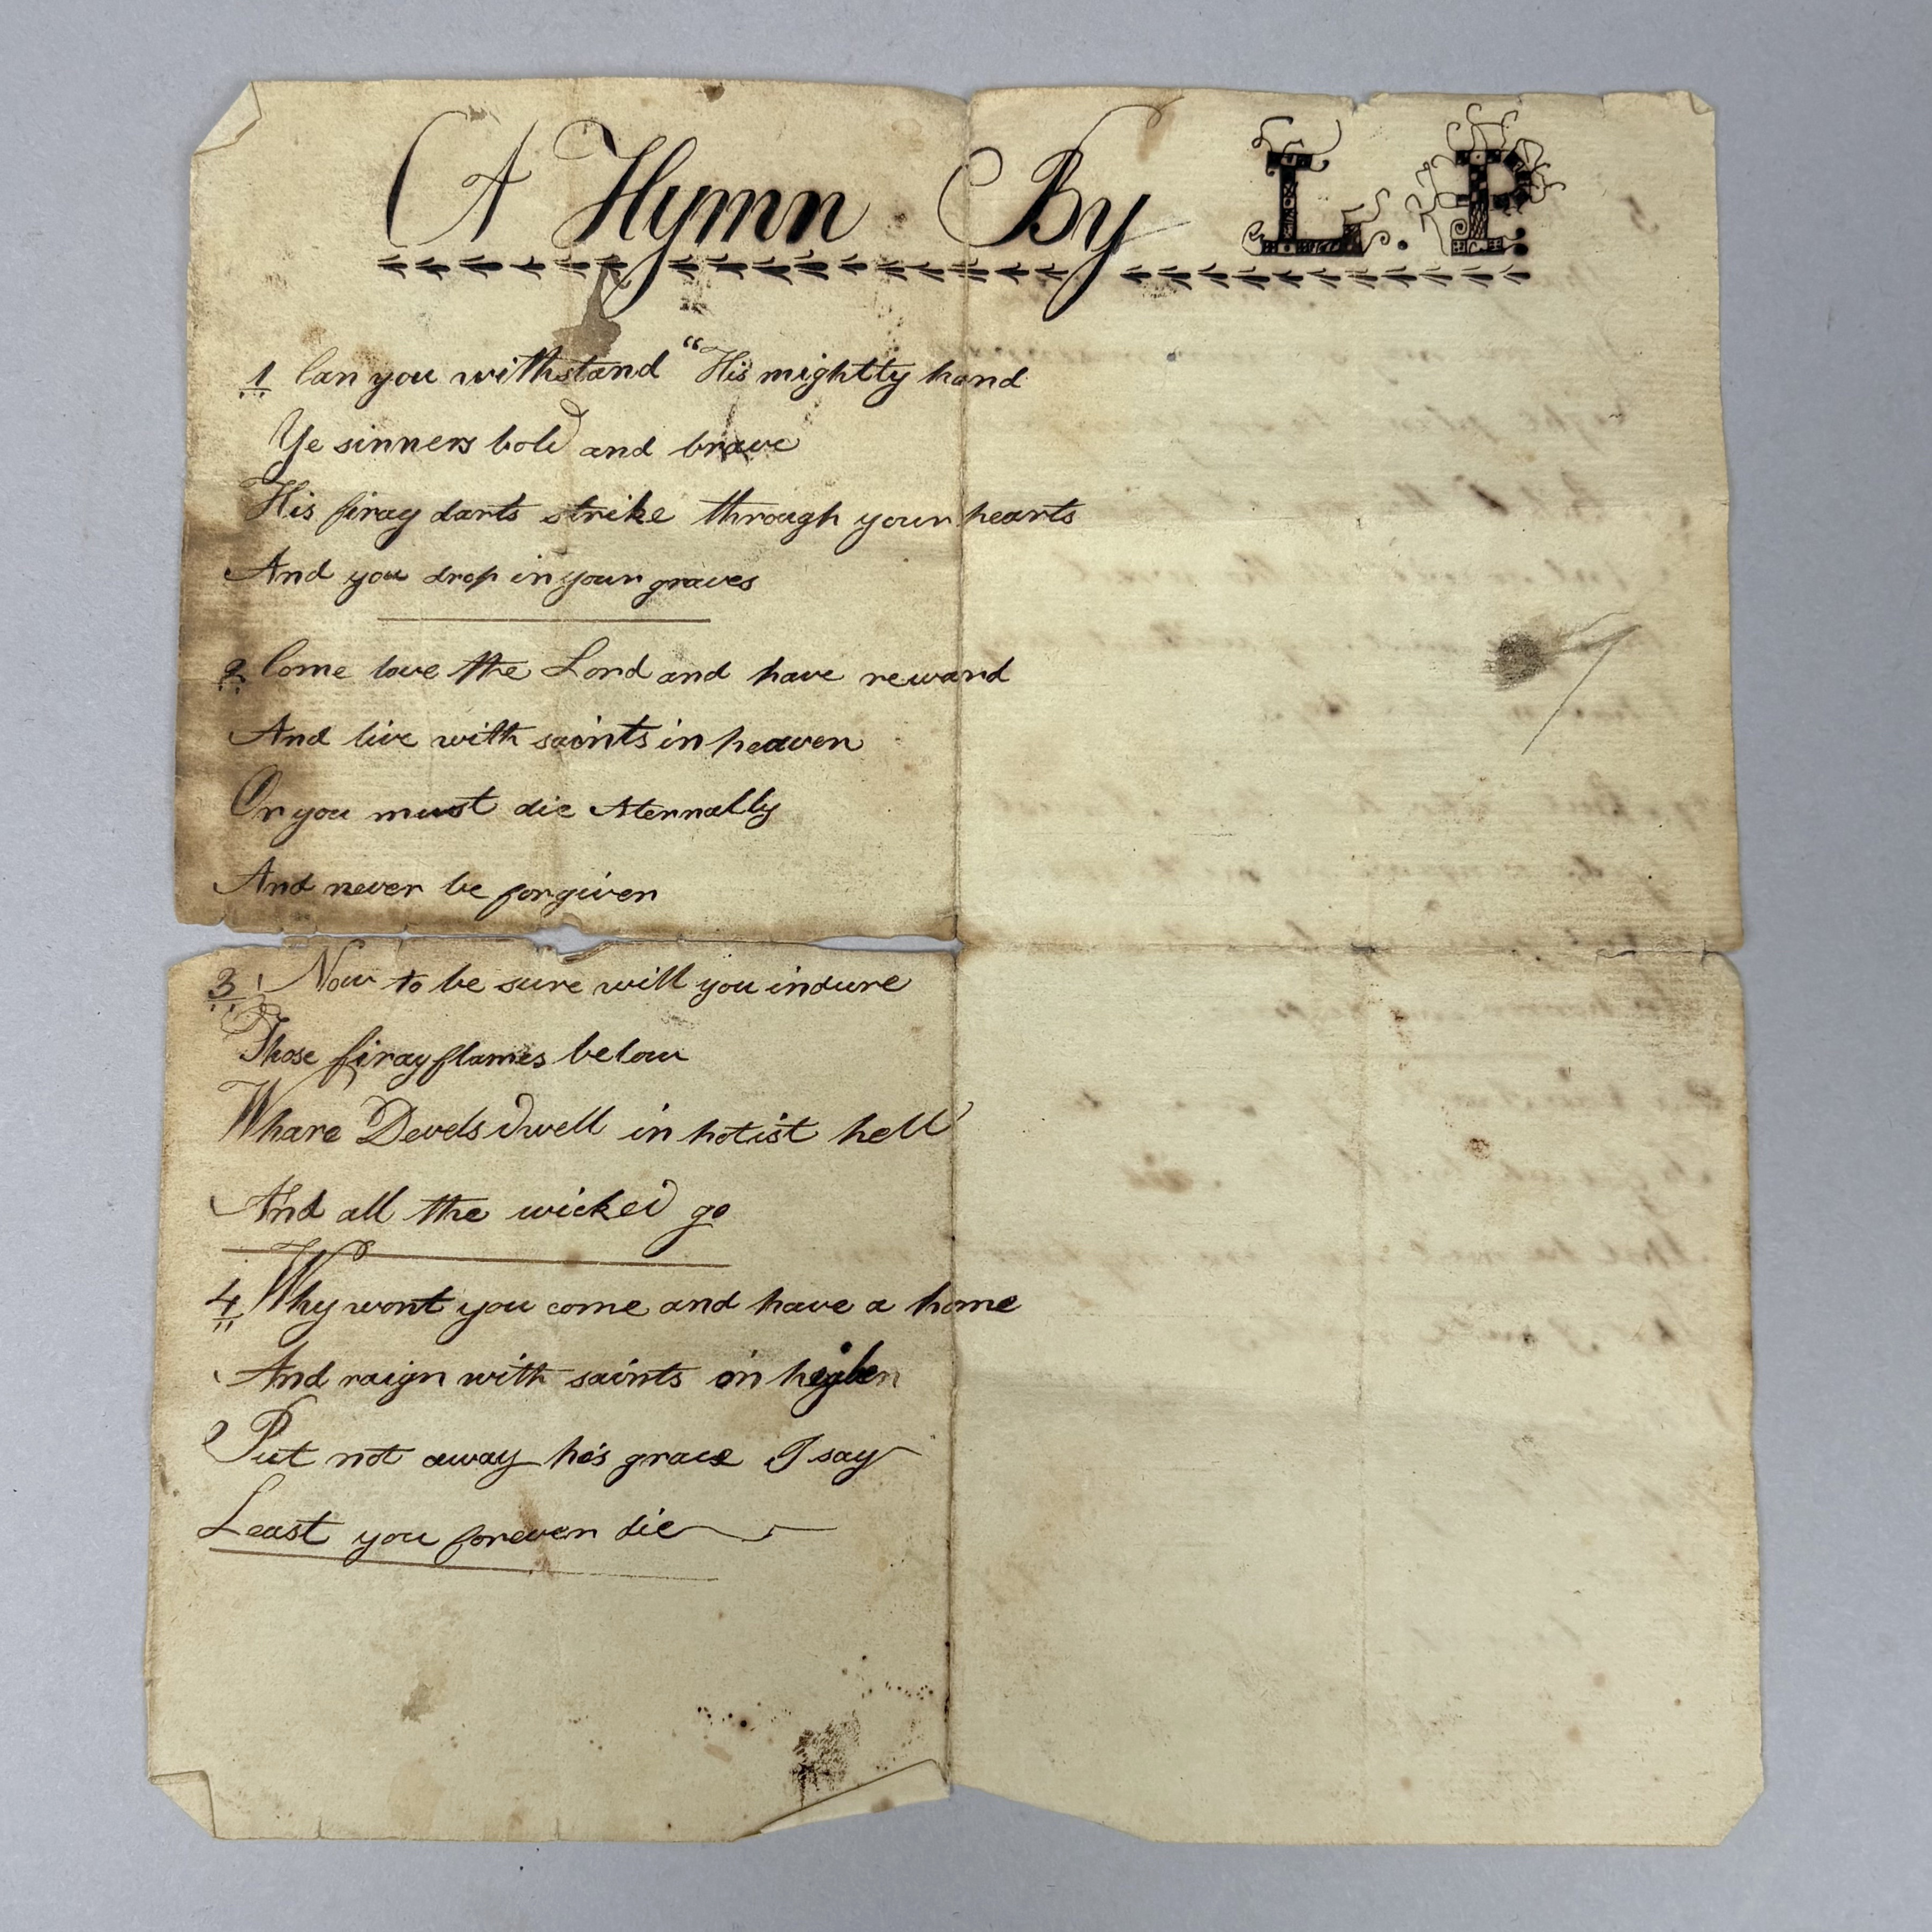 A Hymn By L. P.
1 Can you withstand "His mightty hand
Ye sinners bold and brave
His firay darts strike through your hearts
And you drop in your graves
2 Come love the Lord and have reward
And live with saints in heaven
Or you must die Aternally
And never be forgiven
3 Now to be sure will you indure
Those firay flames below
Whare Devels dwell in hotist hell
And all the wicked go
4 Why wont you come and have a home
And raign with saints on
Put not away he's grace I say
Least you forever die